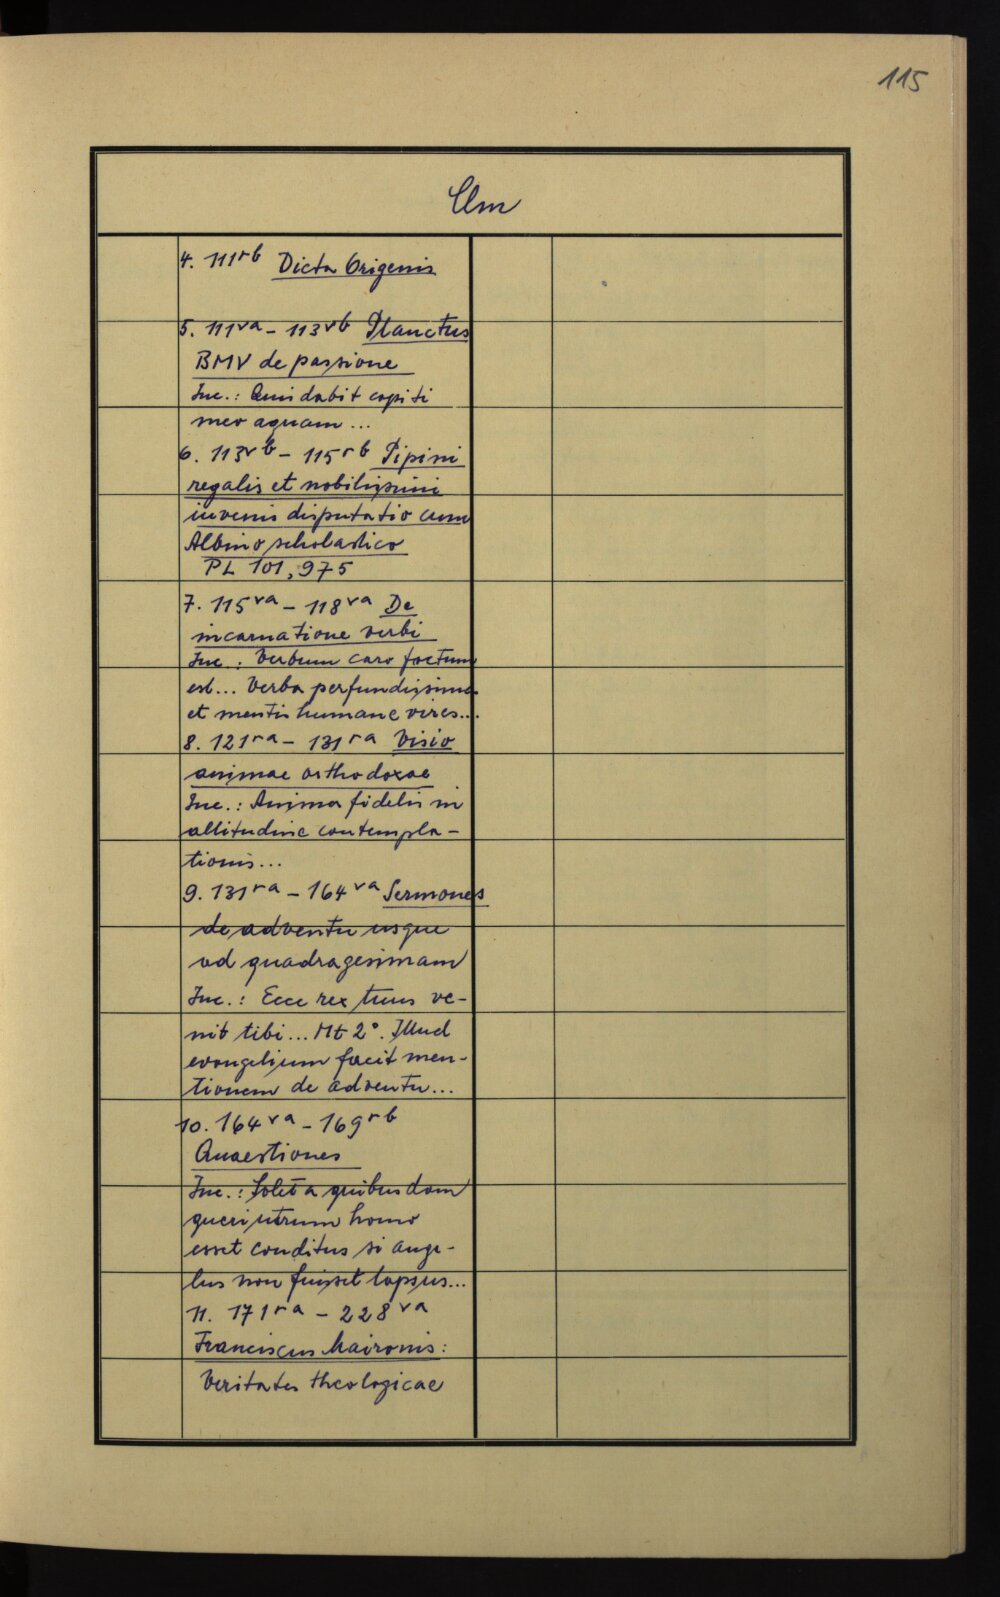 115
Clm
4. 111rb Dicta Origenis
5. 111va – 113vb Planctus
BMV de passione
Inc.: Quis dabit capiti
meo aquam...
6. 113vb – 115rb Pipini
regalis et nobilissimi
iuvenis disputatio cum
Albino scholastico
PL 101, 975
7. 115va – 118va De
incarnatione verbi
Inc.: Verbum caro factum
est... Verba perfundissima
et mentis humane vires...
8. 121ra – 131ra Visio
animae orthodoxae
Inc.: Anima fidelis in
altitudine contempla-
tionis...
9. 131ra – 164va Sermones
de adventu usque
ad quadragesimam
Inc.: Ecce rex tuus ve-
nit tibi... Mt 2°. Illud
evangelium facit men-
tionem de adventu...
10. 164va – 169rb
Quaestiones
Inc.: Solet a quibusdam
queri utrum homo
esset conditus si ange-
lus non fuisset lapsus...
11. 171ra – 228va
Franciscus Maironis:
Veritates theologicae